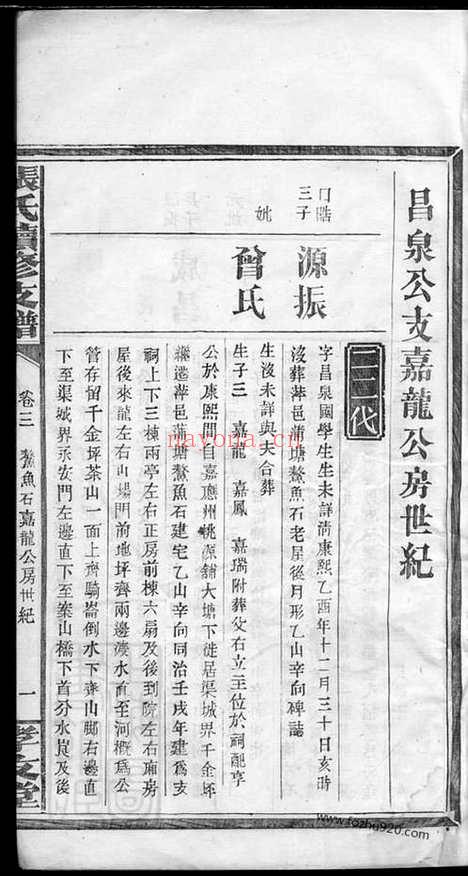 昌泉公支嘉龍公房世紀
二二代
三子
源振
字昌泉國學生生未詳清康熙乙酉年十二月三十日亥時
沒葬萍邑蒲塘鰲魚石老屋後月形乙山辛向碑誌
妣
曾氏
生沒未詳與夫合葬
生子三 嘉龍 嘉鳳 嘉璘附葬父右立主位於祠配享
公於康熙間自嘉應州桃源舖大塘下徙居渠城界千金坪
繼遷萍邑蒲塘鰲魚石建宅乙山辛向同治壬戌年建為支
祠上下三棟兩亭左右正房前棟六扇及後到院左右廂房
屋後來龍左右山場門前地坪齊兩邊滾水直至河概為公
管存留千金坪茶山一面上齊騎崙倒水下齊山腳右邊直
下至渠城界永安門左邊直下至案山橋下首分水崑及後
張氏續修支譜
卷三
鰲魚石嘉龍公房世紀
一
孝友堂
nayona.cn
www.fozhu920.com